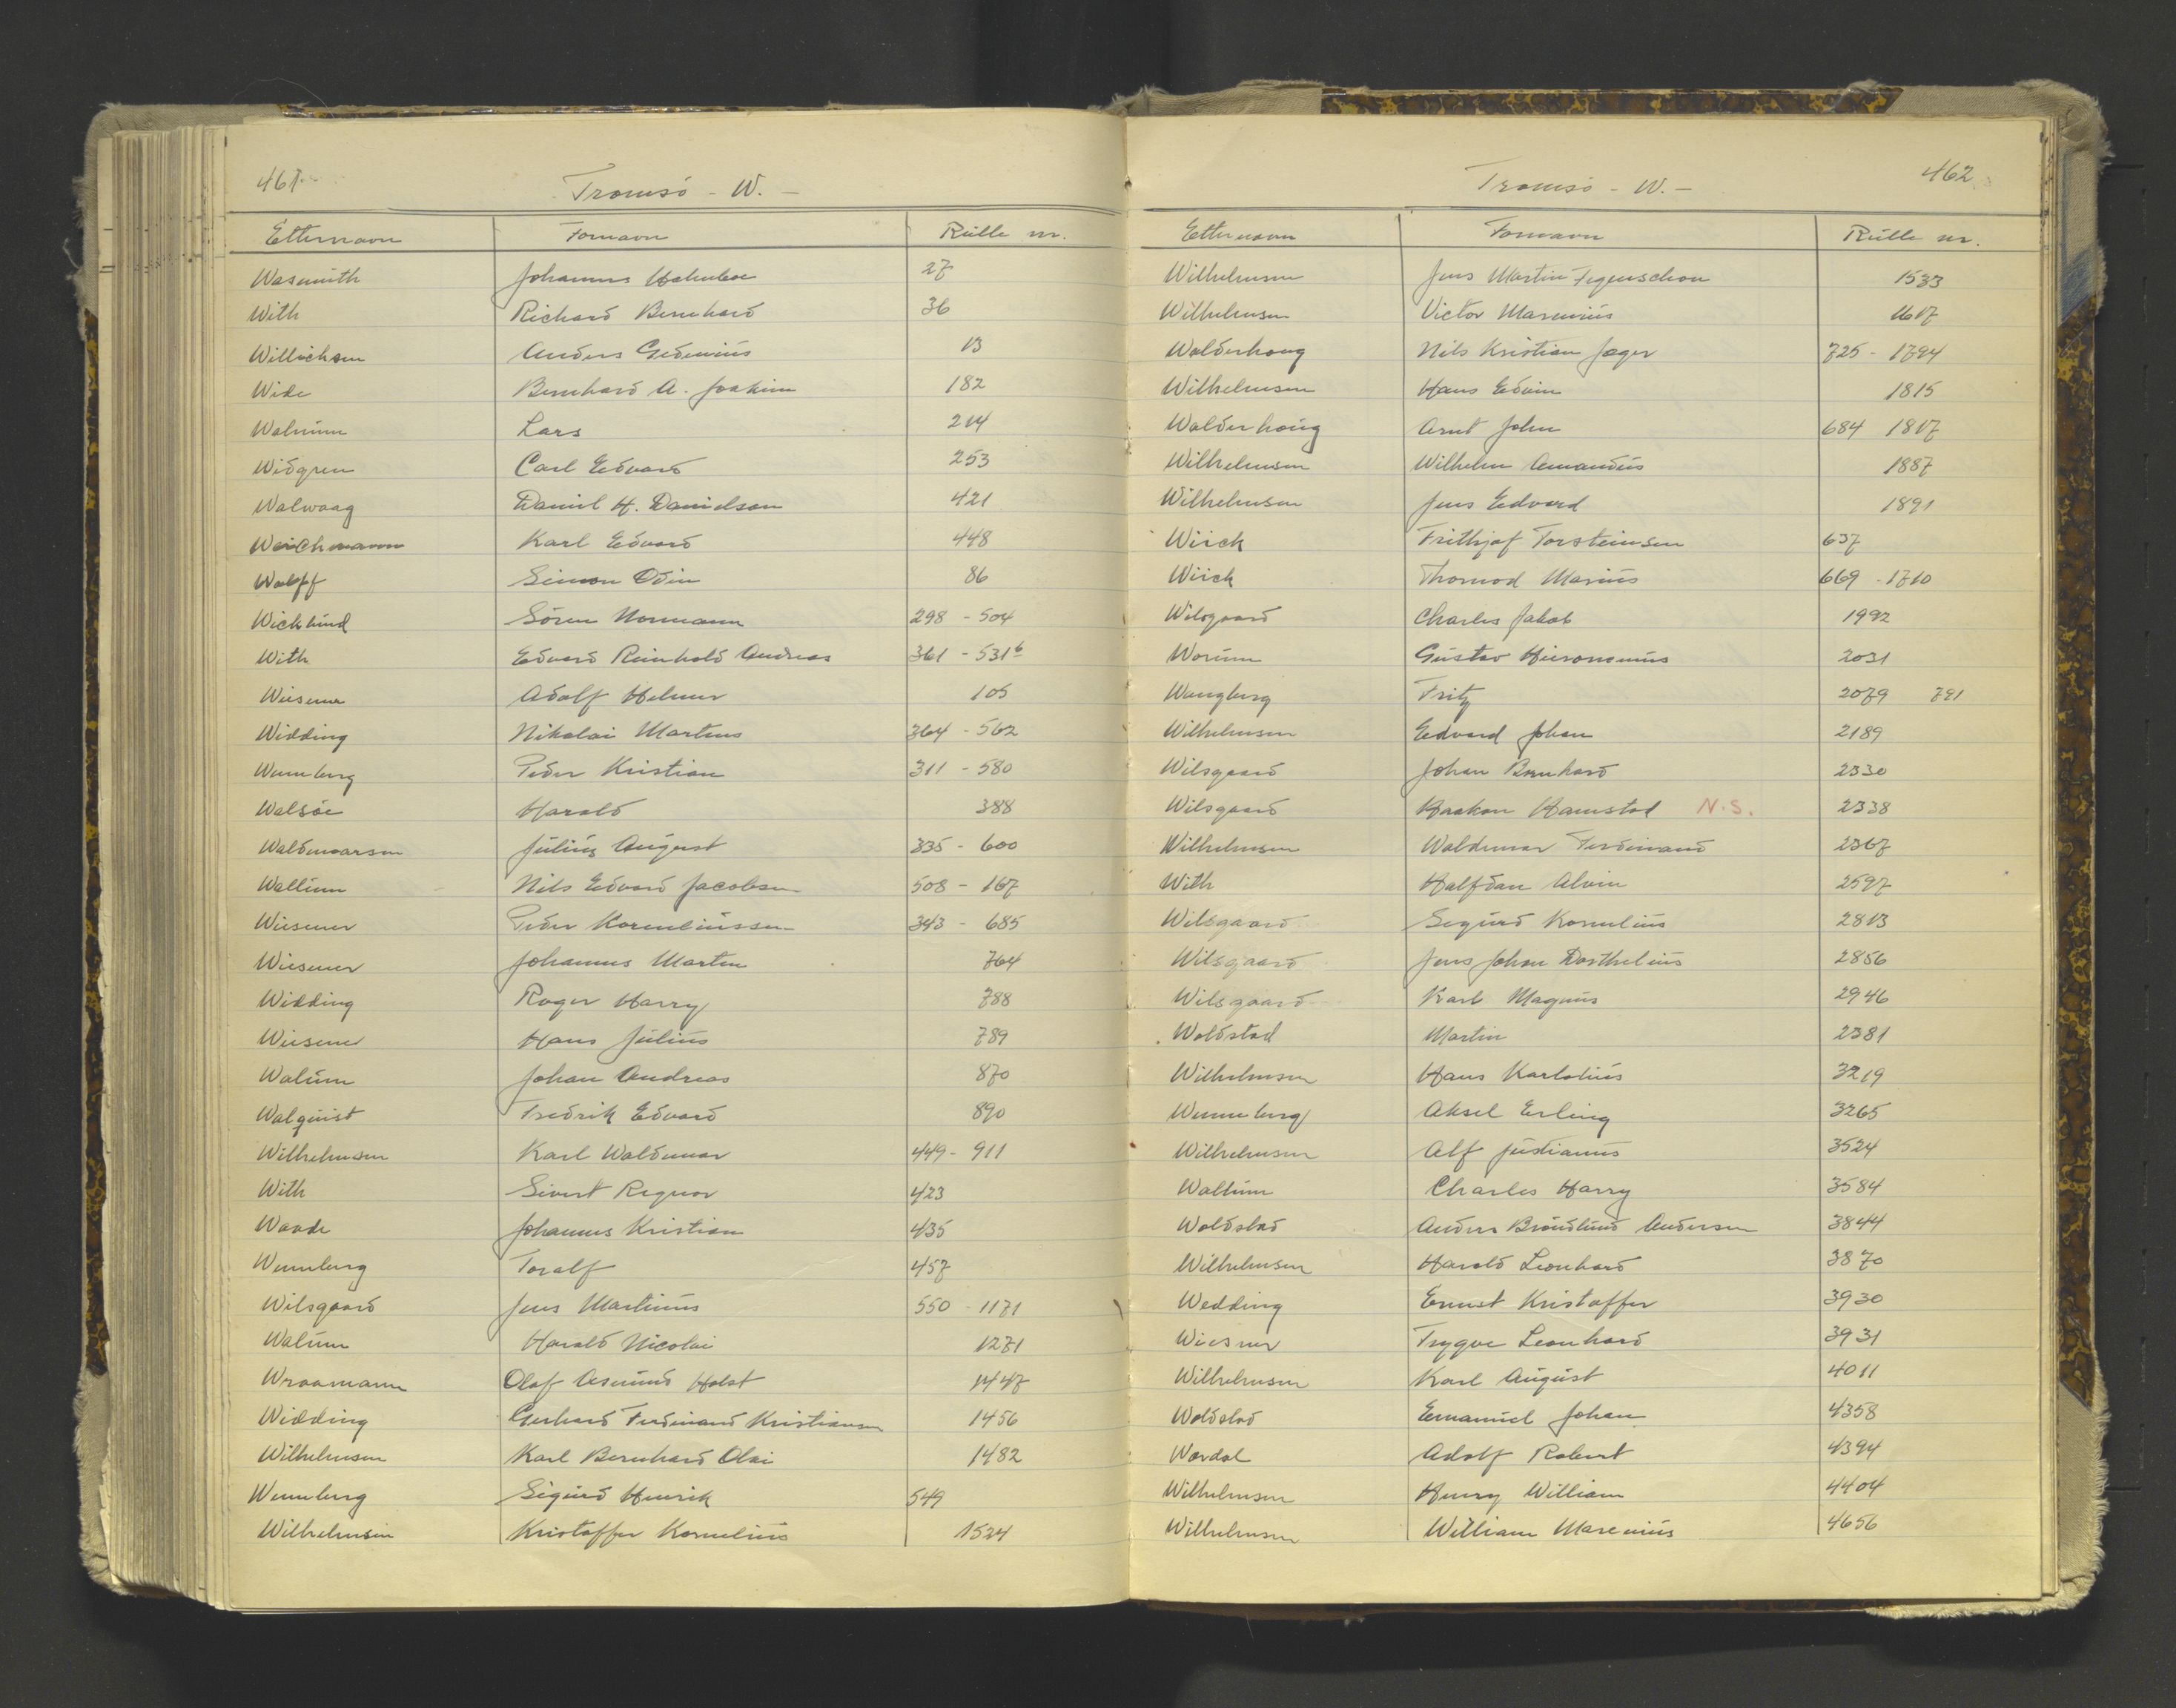 461.
Tromsö - W. -
Etternavn Fornavn Rulle nr.
Wasmuth Johannes Holmboe 27
With Richard Bernhard 36
Willichsen Anders Gedenius 13
Wide Bernhard A. Joakim 182
Walnum Lars 214
Widgren Carl Edvard 253
Walwaag Daniel H. Danielsen 421
Weichmann Karl Edvard 448
Wolff Simon Odin 86
Wicklund Sören Normann 298 - 504
With Edvard Reinhold Andreas 361 - 531b
Wiesener Adolf Helmer 105
Widding Nikolai Martens 364 - 562
Wennberg Peder Kristian 311 - 580
Walsöe Harald 388
Waldemarsen Julius August 335 - 600
Wallum Nils Edvard Jacobsen 508 - 167
Wiesener Peder Korneliussen 343 - 685
Wiesener Johannes Marten 764
Widding Roger Harry 788
Wiesener Hans Julius 789
Walum Johan Andreas 870
Walquist Fredrik Edvard 890
Wilhelmsen Karl Waldemar 449 - 911
With Sivert Regnor 423
Waade Johannes Kristian 435
Wennberg Toralf 457
Wilsgaard Jens Martinus 550 - 1171
Walum Harald Nicolai 1271
Wraamann Olaf Asmund Holst 1447
Widding Gerhard Ferdinand Kristiansen 1456
Wilhelmsen Karl Bernhard Olai 1482
Wennberg Sigurd Henrik 549
Wilhelmsen Kristoffer Kornelius 1524
462
Tromsö - W. -
Etternavn Fornavn Rulle nr.
Wilhelmsen Jens Martin Figenschou 1533
Wilhelmsen Victor Marenius 1617
Walderhaug Nils Kristian Jæger 725 - 1794
Wilhelmsen Hans Edvin 1815
Walderhaug Arnt John 684 1817
Wilhelmsen Wilhelm Amandus 1887
Wilhelmsen Jens Edvard 1891
Wiick Frithjof Torsteinsen 637
Wiick Thormod Marius 669 - 1710
Wilsgaard Charles Jakob 1992
Worum Gustav Hieronemus 2031
Wangberg Fritz 2079 791
Wilhelmsen Edvard Johan 2189
Wilsgaard Johan Bernhard 2330
Wilsgaard Haakon Hamstad N.S. 2338
Wilhelmsen Waldemar Ferdinand 2367
With Halfdan Alvin 2597
Wilsgaard Sigurd Kornelius 2813
Wilsgaard Jens Johan Dorthelius 2856
Wilsgaard Karl Magnus 2946
Woldstad Martin 2381
Wilhelmsen Hans Karlotius 3219
Wenneberg Aksel Erling 3265
Wilhelmsen Alf Justianus 3524
Wallum Charles Harry 3584
Woldstad Anders Bröndlund Andersen 3844
Wilhelmsen Harald Leonhard 3870
Wedding Ernst Kristoffer 3930
Wiesner Trygve Leonhard 3931
Wilhelmsen Karl August 4011
Woldstad Emanuel Johan 4358
Wardal Adolf Robert 4394
Wilhelmsen Henry William 4404
Wilhelmsen William Marenius 4656